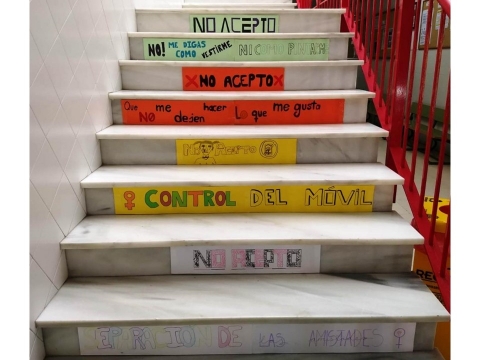 NO ACEPTO
NO! ME DIGAS COMO VESTIRME NI COMO
NO ACEPTO
Que NO me dejen hacer Lo que me gusta
NO ACEPTO
CONTROL DEL MÓVIL
NO ACEPTO
DE LAS AMISTADES